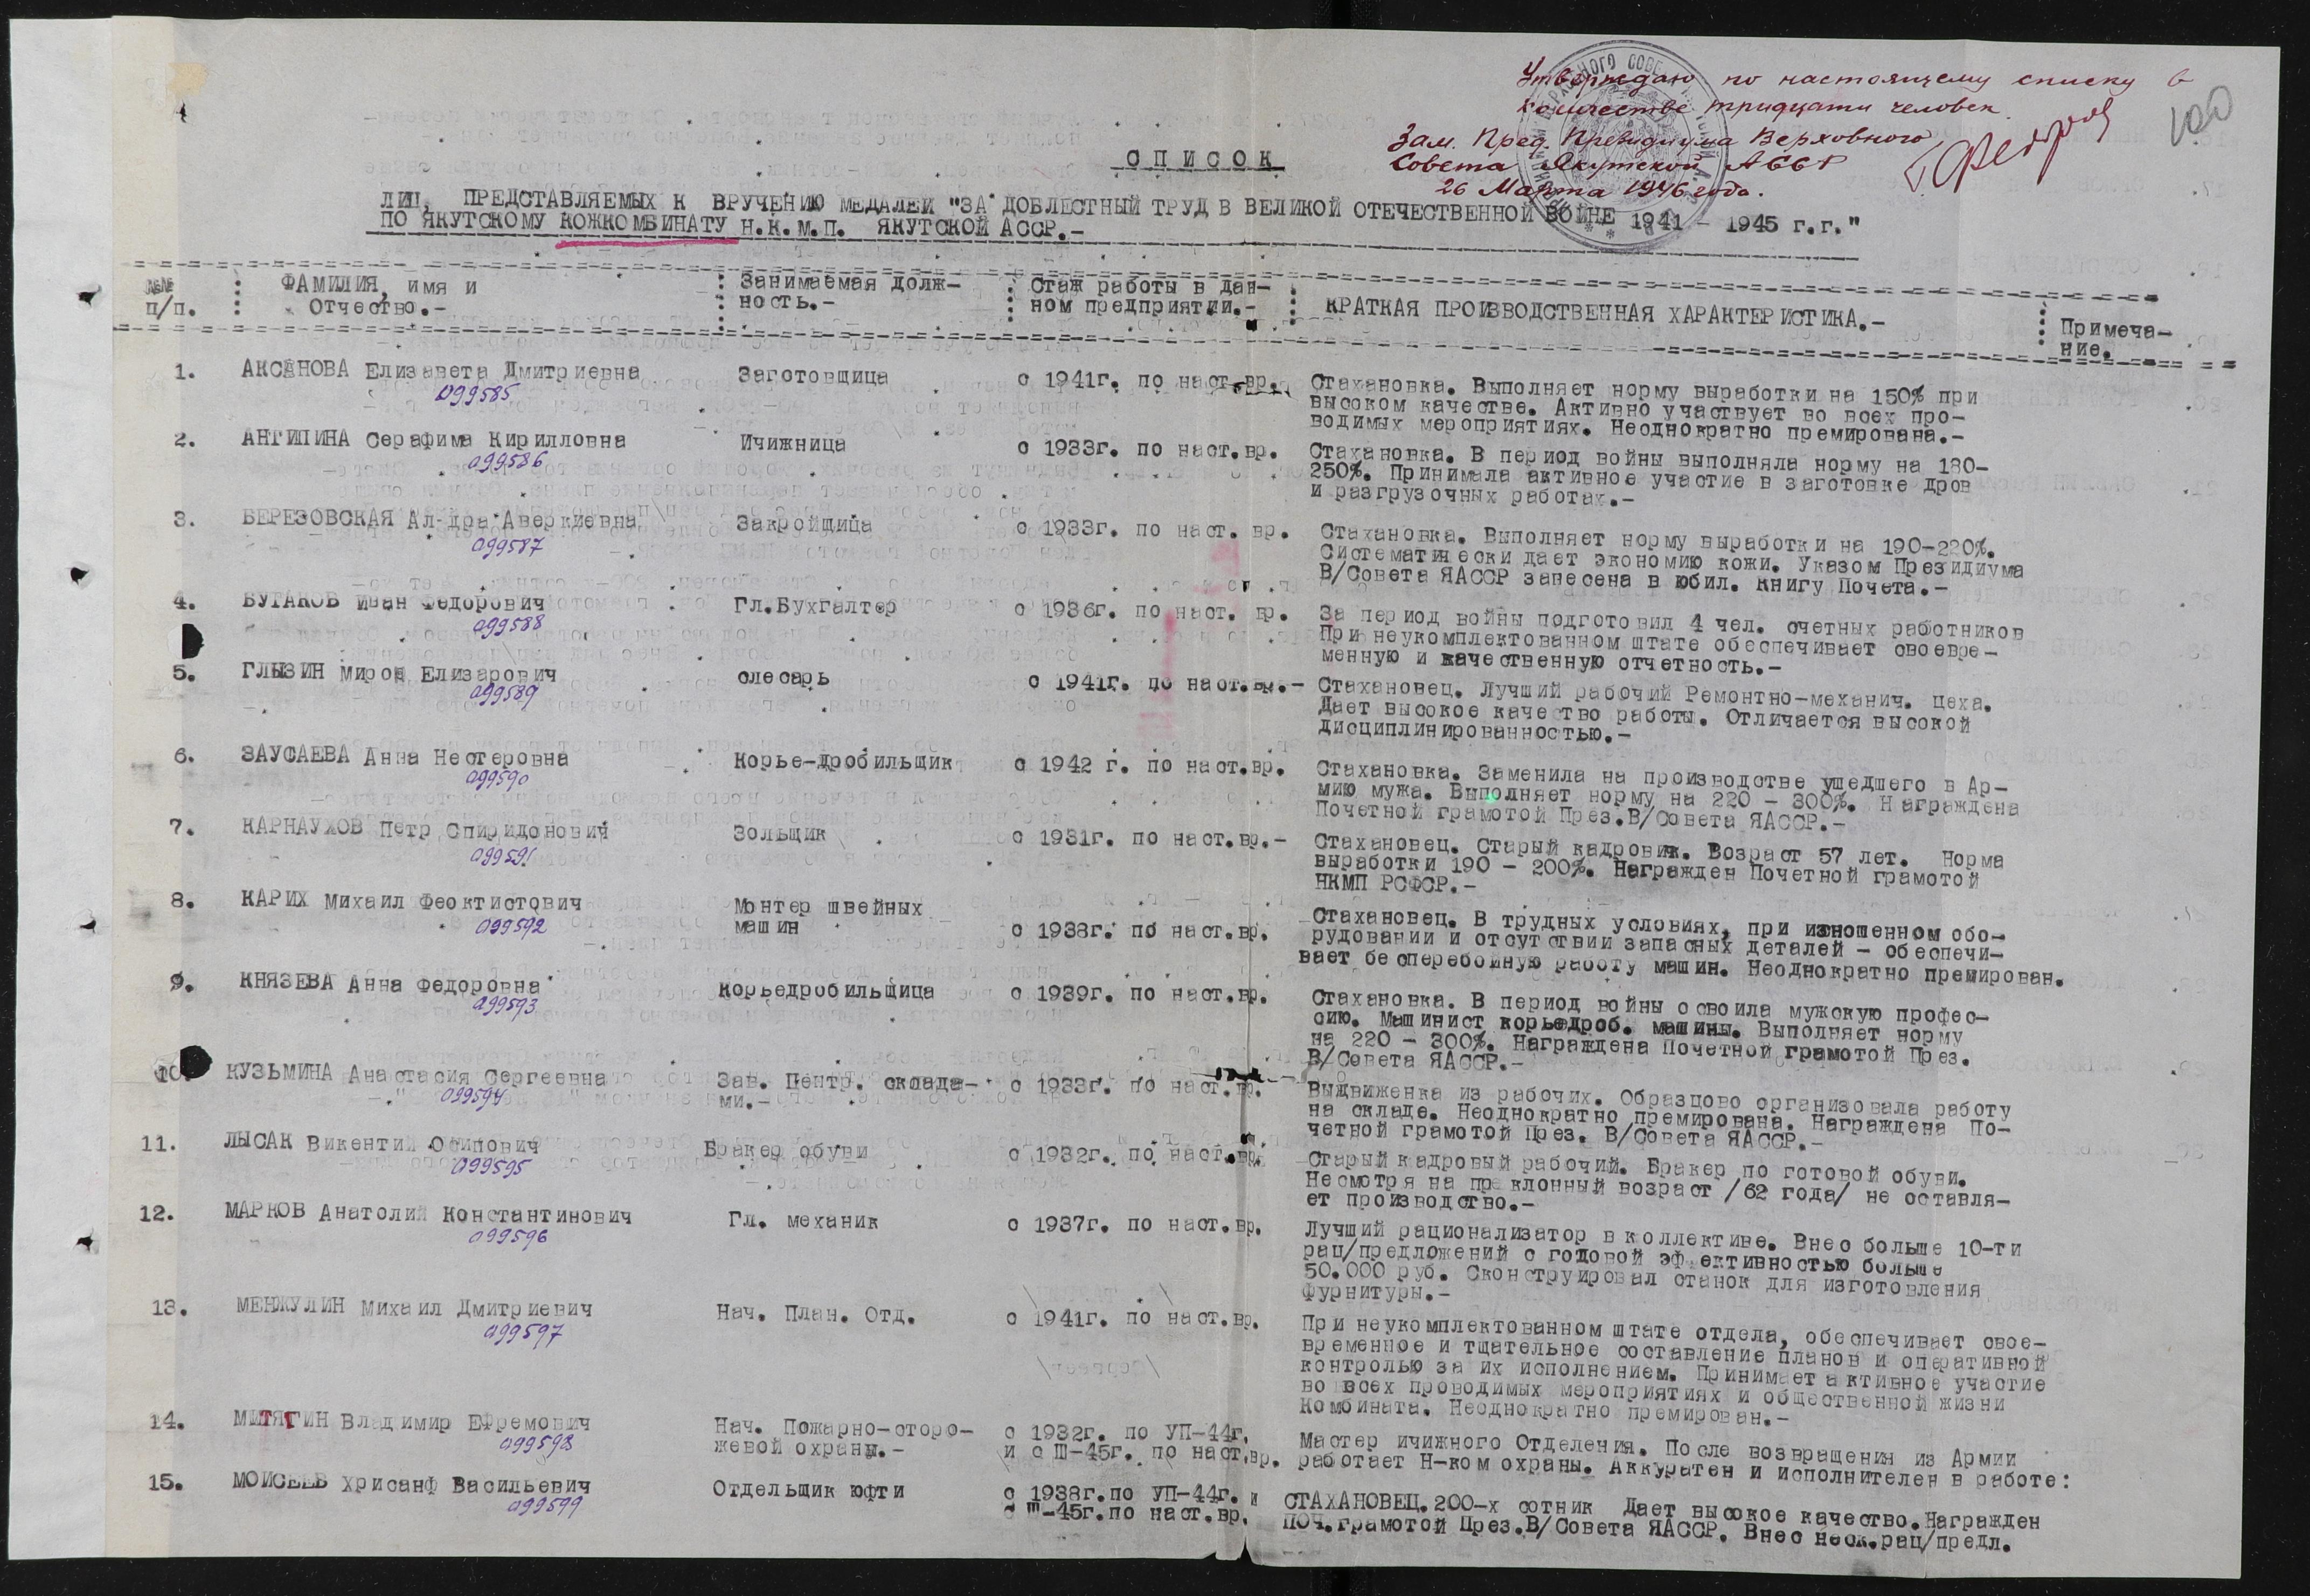 Утверждаю по настоящему списку в
количестве тридцати человек.
Зам. Пред. Президиума Верховного
Совета Якутской АССР
26 Марта 1946 года.
100
СПИСОК
ЛИЦ, ПРЕДСТАВЛЯЕМЫХ К ВРУЧЕНИЮ МЕДАЛЕЙ "ЗА ДОБЛЕСТНЫЙ ТРУД В ВЕЛИКОЙ ОТЕЧЕСТВЕННОЙ ВОЙНЕ 1941 - 1945 г.г."
ПО ЯКУТСКОМУ КОЖКОМБИНАТУ Н.К.М.П. ЯКУТСКОЙ АССР.-
№№ п/п. : ФАМИЛИЯ, имя и Отчество.- : Занимаемая долж-ность.- : Стаж работы в дан-ном предприятии.- : КРАТКАЯ ПРОИЗВОДСТВЕННАЯ ХАРАКТЕРИСТИКА.- : Примеча-ние.
1. АКСАНОВА Елизавета Дмитриевна Заготовщица с 1941г. по наст.вр. Стахановка. Выполняет норму выработки на 150% при
099585 высоком качестве. Активно участвует во всех про-
водимых мероприятиях. Неоднократно премирована.-
2. АНТИПИНА Серафима Кирилловна Ичижница с 1933г. по наст.вр. Стахановка. В период войны выполняла норму на 180-
099586 250%. Принимала активное участие в заготовке дров
и разгрузочных работах.-
3. БЕРЕЗОВСКАЯ Ал-дра Аверкиевна Закройщица с 1933г. по наст. вр. Стахановка. Выполняет норму выработки на 190-220%.
099587 Систематически дает экономию кожи. Указом Президиума
В/Совета ЯАССР занесена в юбил. Книгу Почета.-
4. БУТАКОВ Иван Федорович Гл.Бухгалтер с 1936г. по наст. вр. За период войны подготовил 4 чел. счетных работников
099588 При неукомплектованном штате обеспечивает своевре-
менную и качественную отчетность.-
5. ГЛЫЗИН Мирон Елизарович слесарь с 1941г. по наст.вр.- Стахановец. Лучший рабочий Ремонтно-механич. цеха.
099589 Дает высокое качество работы. Отличается высокой
дисциплинированностью.-
6. ЗАУСАЕВА Анна Нестеровна Корье-дробильщик с 1942 г. по наст.вр. Стахановка. Заменила на производстве ушедшего в Ар-
099590 мию мужа. Выполняет норму на 220 - 300%. Награждена
Почетной грамотой През.В/Совета ЯАССР.-
7. КАРНАУХОВ Петр Спиридонович Зольщик с 1931г. по наст.вр.- Стахановец. Старый кадровик. Возраст 57 лет. Норма
099591 выработки 190 - 200%. Награжден Почетной грамотой
НКМП РСФСР.-
8. КАРИХ Михаил Феоктистович Монтер швейных
099592 машин с 1938г. по наст.вр. Стахановец. В трудных условиях, при изношенном обо-
рудовании и отсутствии запасных деталей - обеспечи-
вает бесперебойную работу машин. Неоднократно премирован.
9. КНЯЗЕВА Анна Федоровна Корьедробильщица с 1939г. по наст.вр. Стахановка. В период войны освоила мужскую профес-
099593 сию. Машинист корьедроб. машины. Выполняет норму
на 220 - 300%. Награждена Почетной грамотой През.
В/Совета ЯАССР.-
10. КУЗЬМИНА Анастасия Сергеевна Зав. Центр. склада- с 1933г. по наст.вр. Выдвиженка из рабочих. Образцово организовала работу
099594 ми.- на складе. Неоднократно премирована. Награждена По-
четной грамотой През. В/Совета ЯАССР.-
11. ЛЫСАК Викентий Осипович Бракер обуви с 1932г. по наст.вр. Старый кадровый рабочий. Бракер по готовой обуви.
099595 Несмотря на преклонный возраст /62 года/ не оставля-
ет производство.-
12. МАРКОВ Анатолий Константинович Гл. механик с 1937г. по наст.вр. Лучший рационализатор в коллективе. Внес больше 10-ти
099596 рац/предложений с годовой эффективностью больше
50.000 руб. Сконструировал станок для изготовления
фурнитуры.-
13. МЕНЖУЛИН Михаил Дмитриевич Нач. План. Отд. с 1941г. по наст.вр. При неукомплектованном штате отдела, обеспечивает свое-
099597 временное и тщательное составление планов и оперативной
контролью за их исполнением. Принимает активное участие
во всех проводимых мероприятиях и общественной жизни
Комбината. Неоднократно премирован.-
14. МИТЯГИН Владимир Ефремович Нач. Пожарно-сторо- с 1932г. по УП-44г. Мастер ичижного Отделения. После возвращения из Армии
099598 жевой охраны.- и с Ш-45г. по наст.вр. работает Н-ком охраны. Аккуратен и исполнителен в работе:
15. МОИСЕЕВ Хрисанф Васильевич Отдельщик юфти с 1938г.по УП-44г. и СТАХАНОВЕЦ.200-х сотник Дает высокое качество.Награжден
099599 с Ш-45г.по наст.вр. ПОЧ.грамотой През.В/Совета ЯАССР. Внес неск.рац/предл.